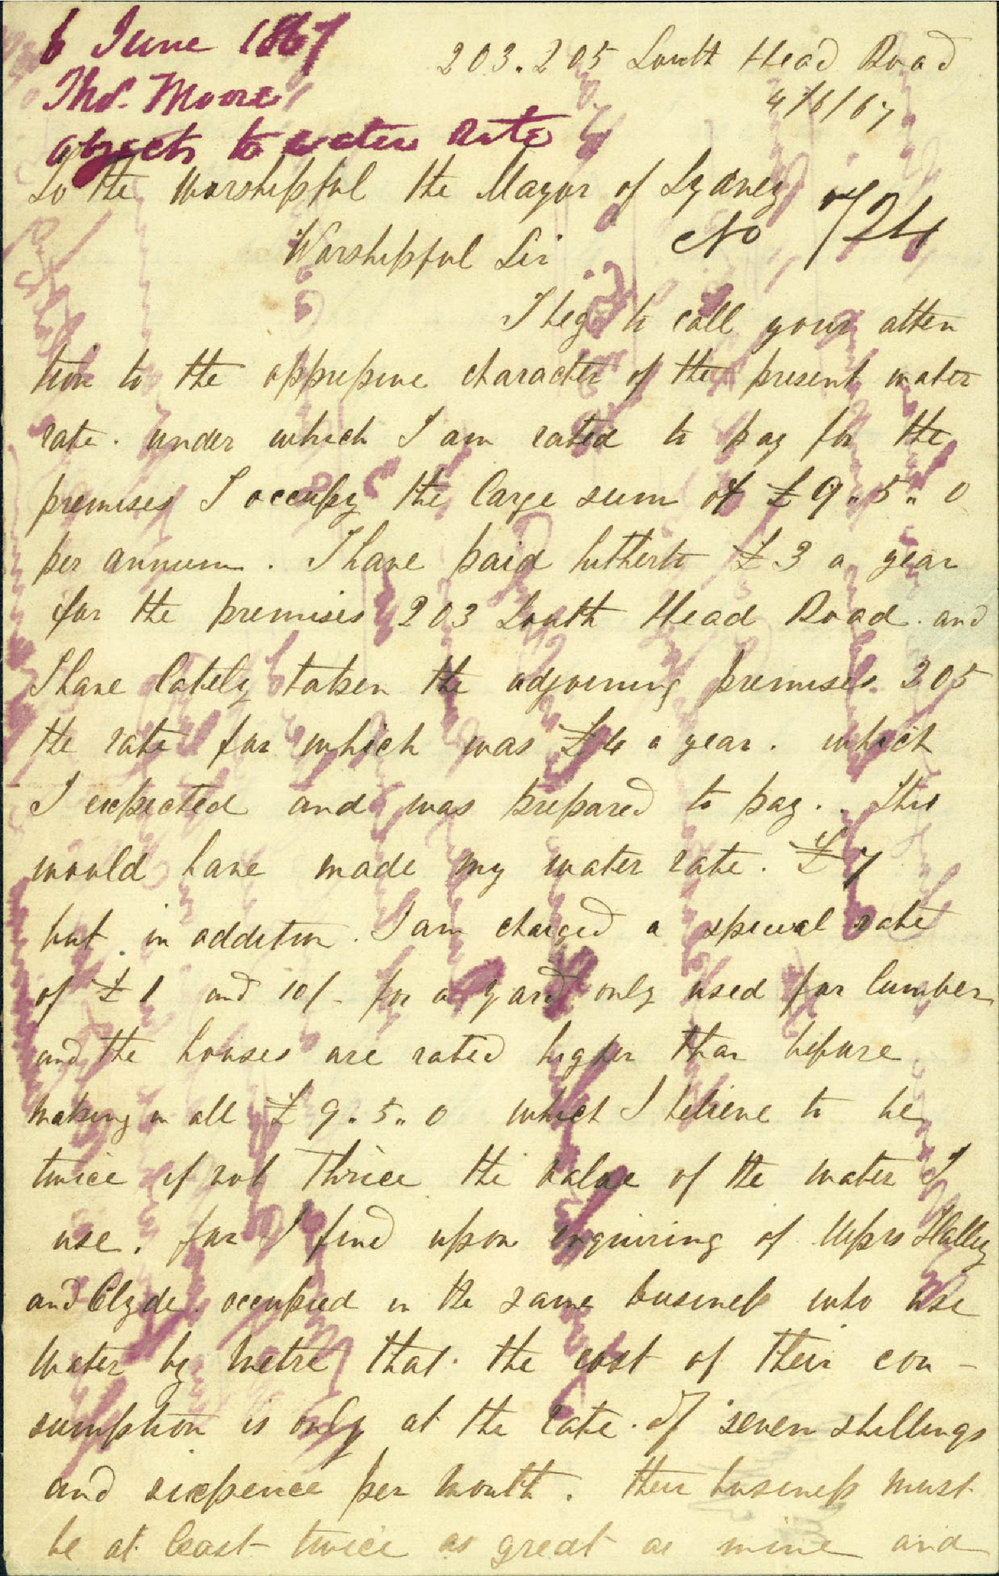 6 June 1867
Thos. Moore
objects to water rate
203.205 South Head Road
4/6/67
To the Worshipful the Mayor of Sydney
No 724
Worshipful Sir
I beg to call your atten
tion to the oppressive character of the present water
rate. under which I am rated to pay for the
premises I occupy the large sum of £9..5..0
per annum. I have paid hitherto £3 a year
for the premises 203 South Head Road. and
I have lately taken the adjoining premises. 205
the rate for which was £4 a year. which
I expected and was prepared to pay. This
would have made my water rate. £7
but in addition. I am charged a special rate
of £1 and 10/- for a yard only used for lumber
and the houses are rated higher than before
making in all £9..5..0 which I believe to be
twice if not thrice the value of the water I
use. for I find upon enquiring of Messrs Halley
and Clyde. occupied in the same business who use
water by metre that the cost of their con-
sumption is only at the rate of seven shillings
and sixpence per month. their business must
be at least twice as great as mine and